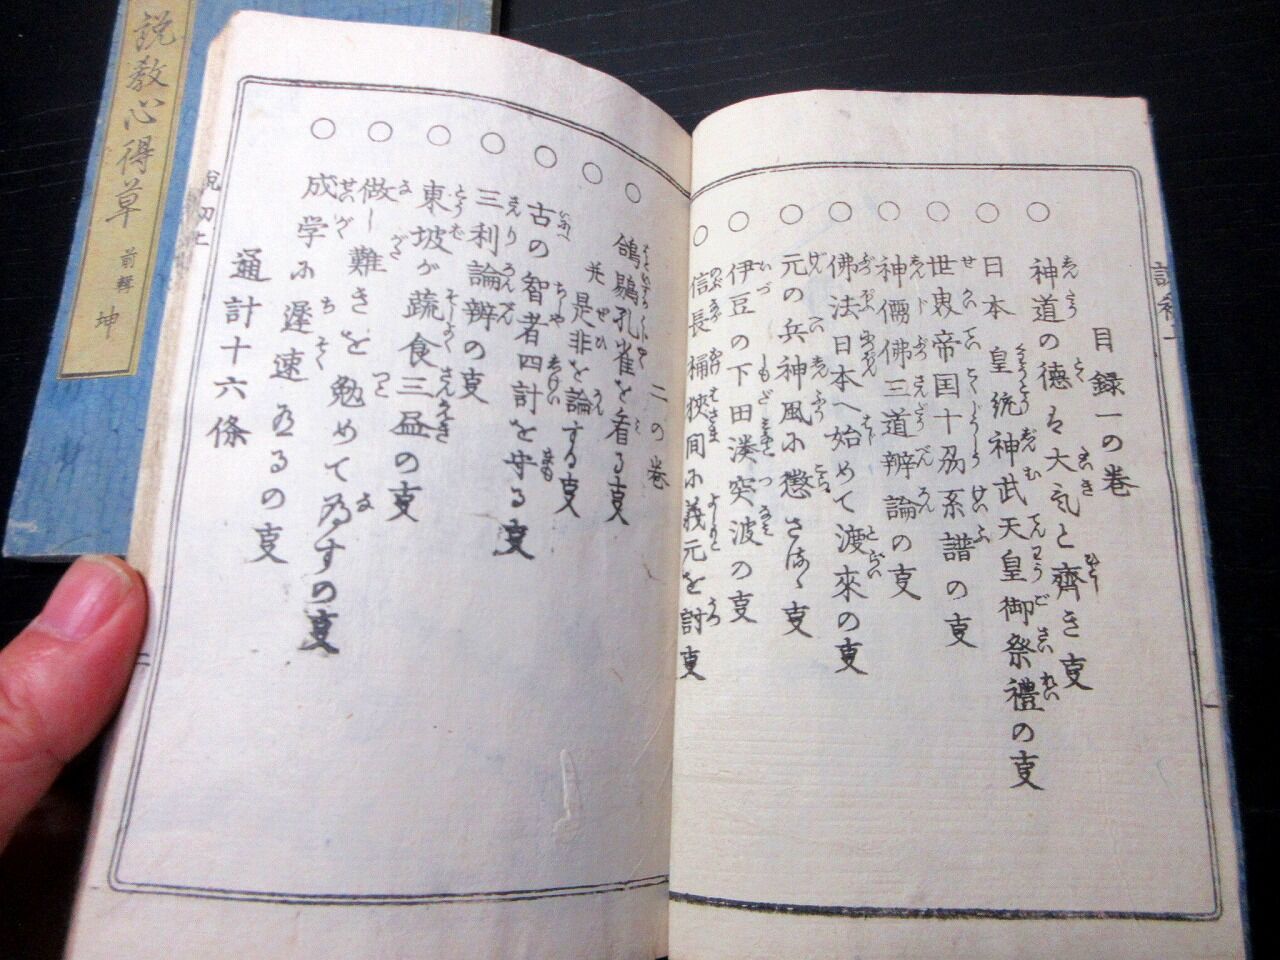 目録一の巻
○神道の徳ハ大気と齊き支
○日本皇統神武天皇御祭禮の支
○世界帝国十易系譜の支
○神儒佛三道辨論の支
○佛法日本へ始めて渡來の支
○元の兵神風に懲さるゝ支
○伊豆の下田湊突波の支
○信長桶狹間に義元を討支
二の巻
○鴿鷃孔雀を看る支
并是非を論する支
○古の智者四計を守る支
○三利論辨の支
○東坡が蔬食三益の支
○做し難きを勉めて為すの支
○成学に遅速あるの支
通計十六條
説教心得草 前輯 坤